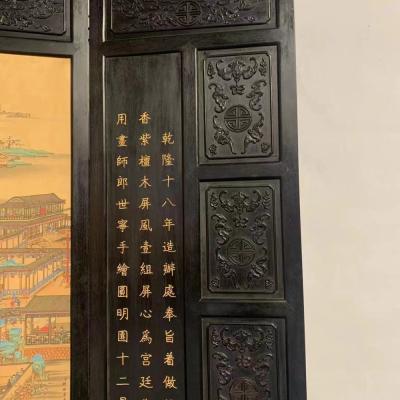 乾隆十八年造辦處奉旨着做
香紫檀木屏風壹組屏心為宮廷
用畫師郎世寧手繪圓明園十二